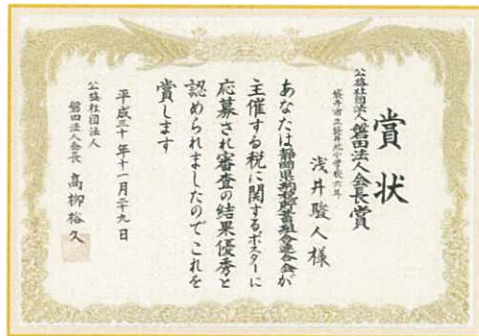 賞状
公益社団法人磐田法人会長賞
袋井市立袋井北小学校六年
浅井駿人様
あなたは静岡県納税貯蓄組合連合会が
主催する税に関するポスターに
応募され審査の結果優秀と
認められましたのでこれを
賞します
平成三十年十一月二十九日
公益社団法人
磐田法人会長 高柳裕久